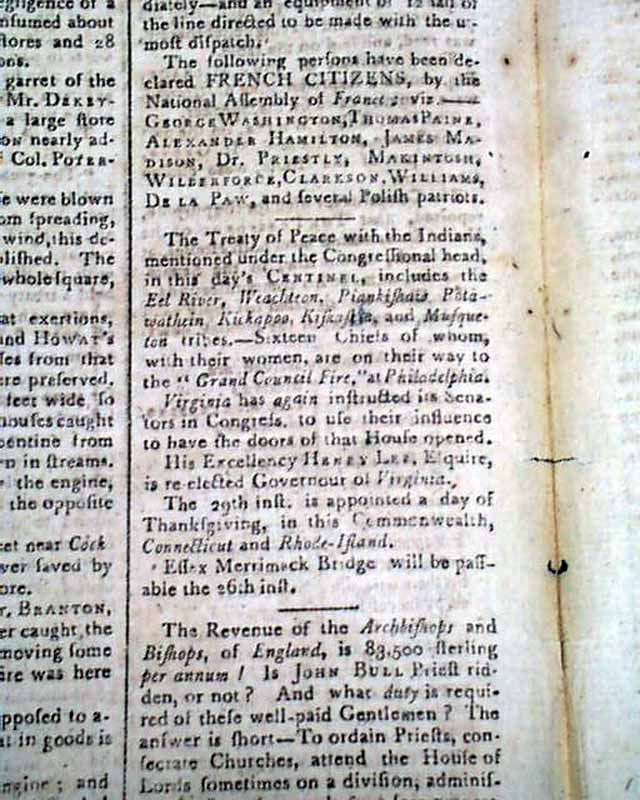 negligence of a
nſumed about
ſtores and 28
garret of the
Mr. DEKEY-
a large ſtore
ON nearly ad-
Col. POTER-
e were blown
om ſpreading,
wind, this de-
oliſhed. The
whole ſquare,
at exertions,
and HOWAT'S
ſes from that
ere preſerved.
feet wide, ſo
houſes caught
pentine from
n in ſtreams.
the engine,
the oppoſite
et near Cock
ver ſaved by
ore.
r. BRANTON,
er caught the
moving ſome
fire was here
ppoſed to a-
at in goods is
ngine ; and
diately—and an equipment of 12 ſail of
the line directed to be made with the u-
moſt diſpatch.
The following perſons have been de-
clared FRENCH CITIZENS, by the
National Aſſembly of France : viz.—
GEORGE WASHINGTON, THOMAS PAINE,
ALEXANDER HAMILTON, JAMES MA-
DISON, Dr. PRIESTLY, MAKINTOSH,
WILBERFORCE, CLARKSON, WILLIAMS,
DE LA PAW, and ſeveral Poliſh patriots.
The Treaty of Peace with the Indians,
mentioned under the Congreſſional head,
in this day's CENTINEL, includes the
Eel River, Weachteon, Piankiſhaw, Pota-
wathein, Kickapoo, and Muſque-
ton tribes.—Sixteen Chiefs of whom,
with their women, are on their way to
the " Grand Council Fire," at Philadelphia.
Virginia has again inſtructed its Sena-
tors in Congreſs, to uſe their influence
to have the doors of that Houſe opened.
His Excellency HENRY LEE, Eſquire,
is re-elected Governour of Virginia.
The 29th inſt. is appointed a day of
Thankſgiving, in this Commonwealth,
Connecticut and Rhode-Iſland.
Eſſex Merrimack Bridge will be paſſ-
able the 26th inſt.
The Revenue of the Archbiſhops and
Biſhops, of England, is 83,500 ſterling
per annum ! Is JOHN BULL Prieſt rid-
den, or not ? And what duty is requi-
red of theſe well-paid Gentlemen ? The
anſwer is ſhort—To ordain Prieſts, con-
ſecrate Churches, attend the Houſe of
Lords ſometimes on a diviſion, adminiſ-